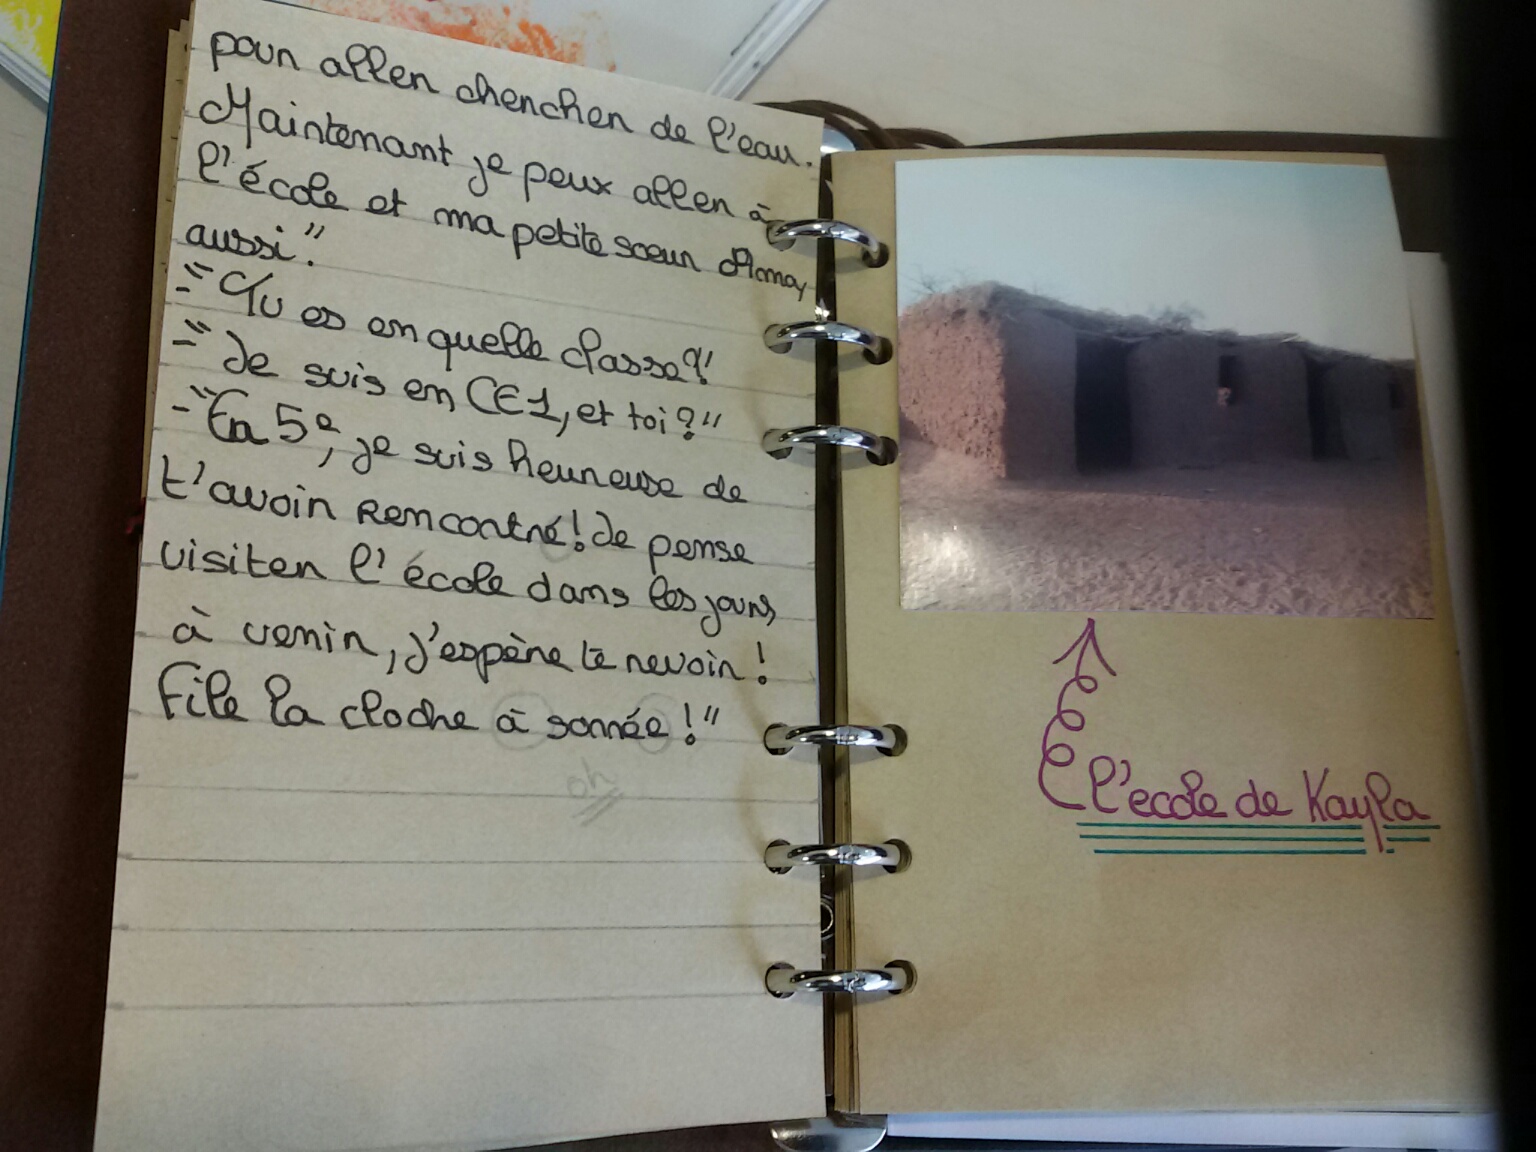 pour aller chercher de l'eau.
Maintenant je peux aller à
l'école et ma petite sœur Amay
aussi".
-"Tu es en quelle classe?"
-"Je suis en CE1, et toi?"
-"En 5e, je suis heureuse de
t'avoir rencontré! Je pense
visiter l'école dans les jours
à venir, j'espère te revoir!
File la cloche à sonnée!"
oh
l'ecole de Kayla